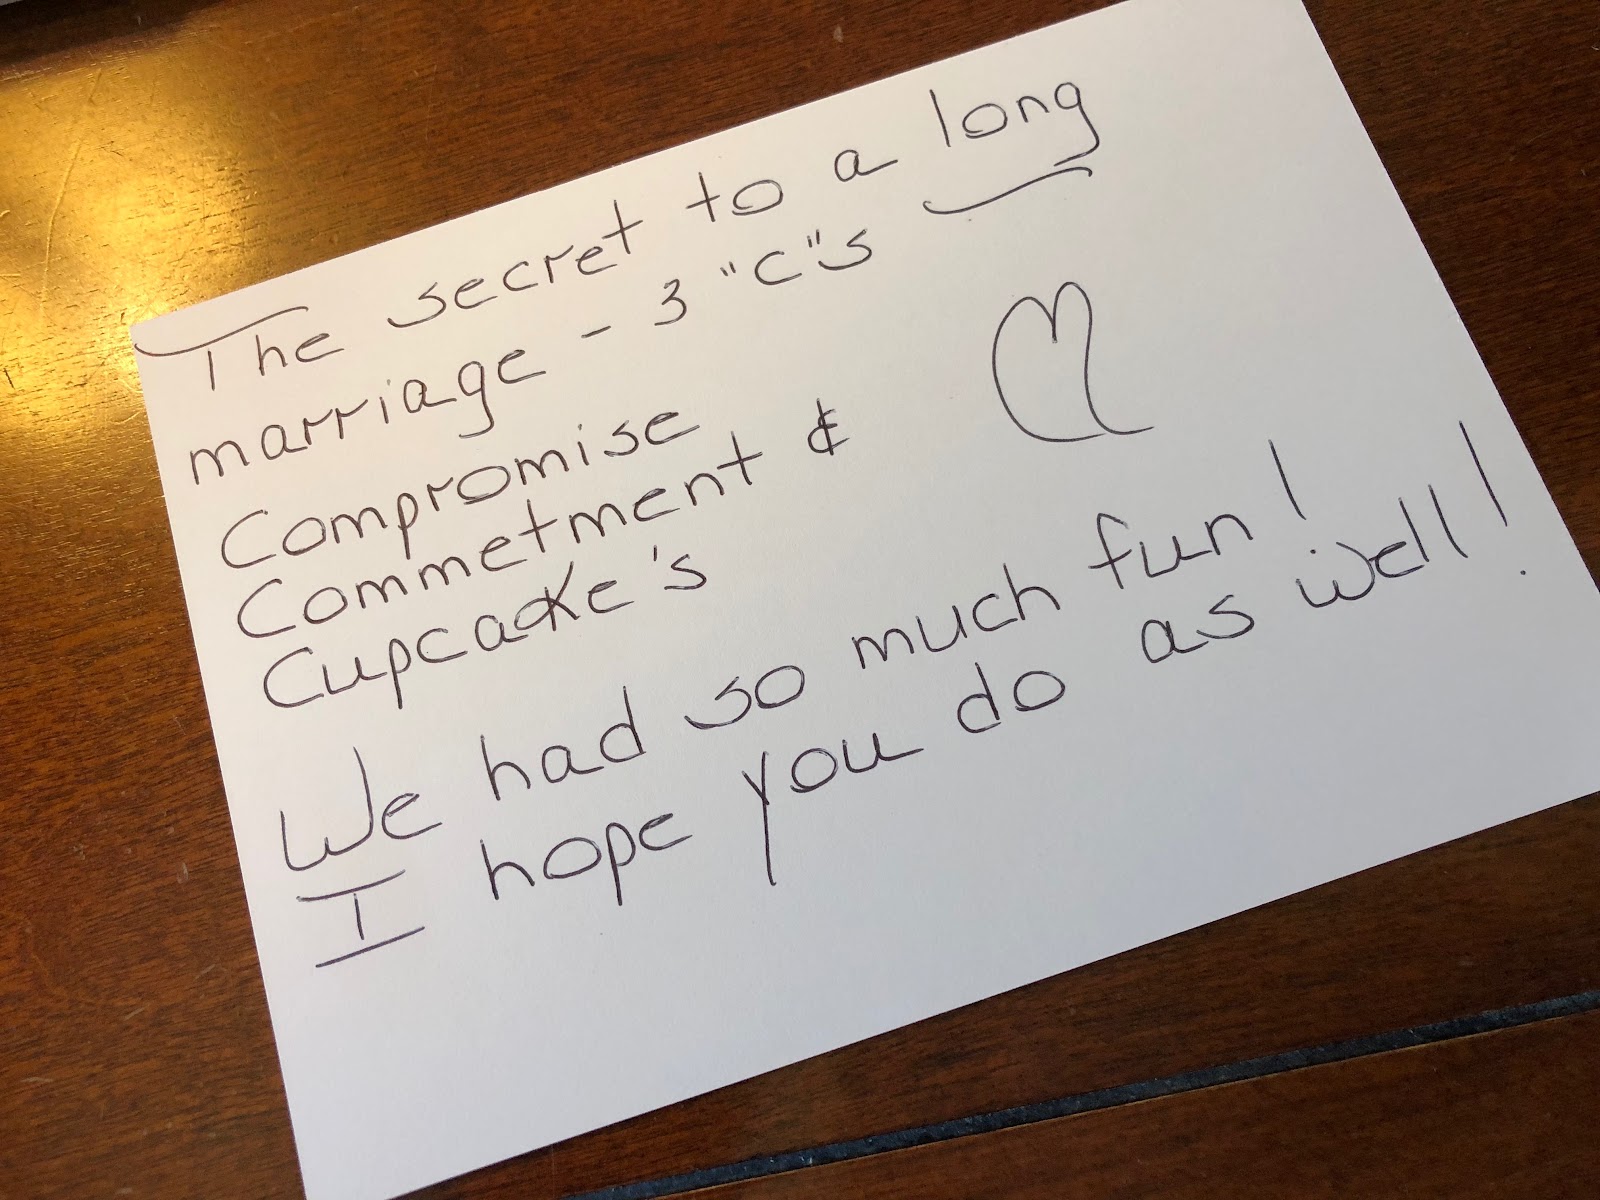 The secret to a long
marriage - 3 "C"s
Compromise
Commetment &
Cupcake's
We had so much fun!
I hope you do as well!